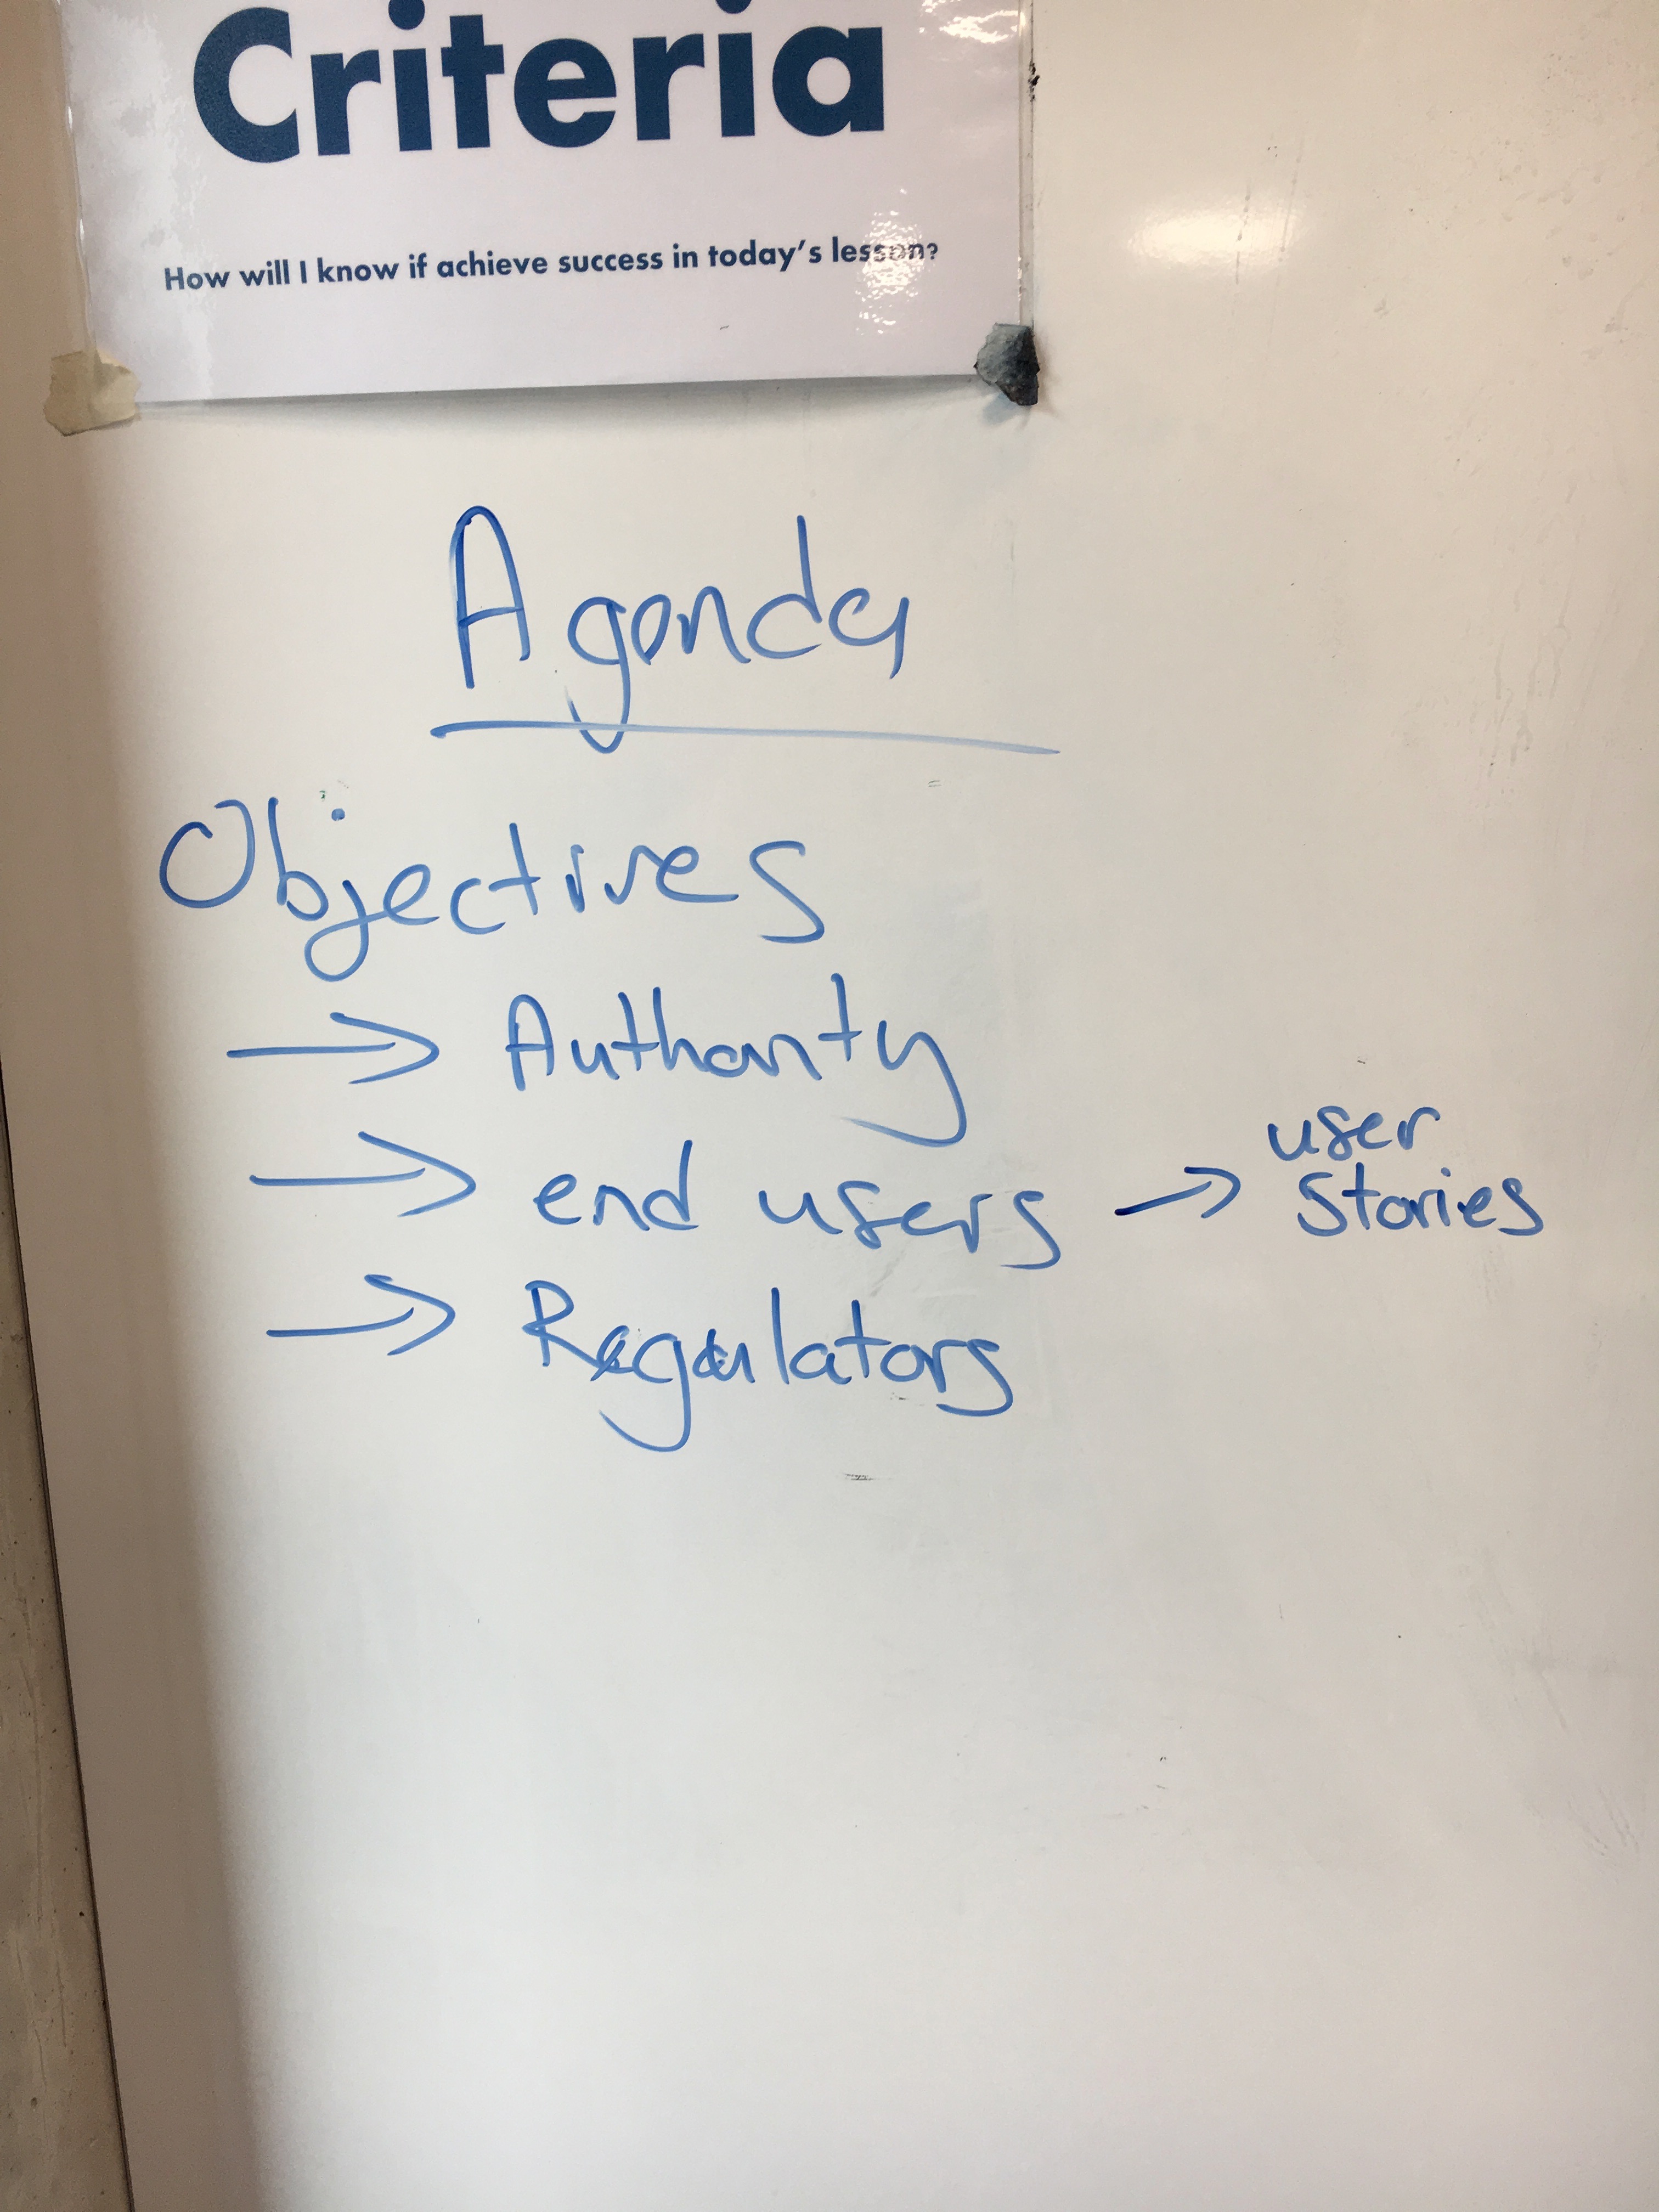 Criteria
How will I know if achieve success in today's lesson?
Agenda
Objectives
→ Authority
→ end users → user stories
→ Regulators